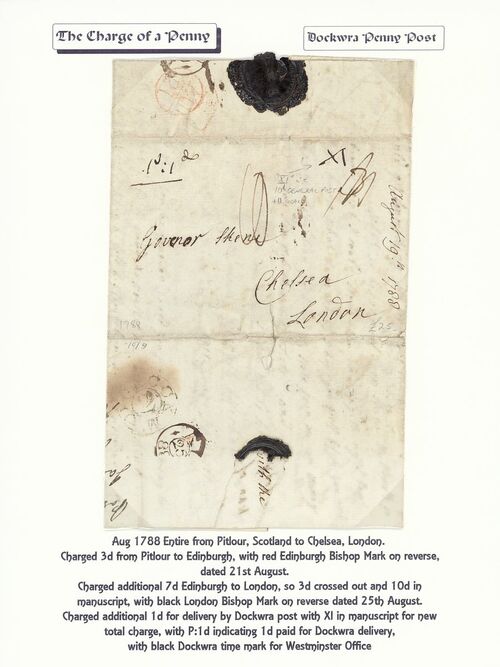 The Charge of a Penny
Dockwra Penny Post
XI
Govenor Skene
Chelsea
London
August 19th 1788
1788
£25
with the
Aug 1788 Entire from Pitlour, Scotland to Chelsea, London.
Charged 3d from Pitlour to Edinburgh, with red Edinburgh Bishop Mark on reverse,
dated 21st August.
Charged additional 7d Edinburgh to London, so 3d crossed out and 10d in
manuscript, with black London Bishop Mark on reverse dated 25th August.
Charged additional 1d for delivery by Dockwra post with XI in manuscript for new
total charge, with P:1d indicating 1d paid for Dockwra delivery,
with black Dockwra time mark for Westminster Office